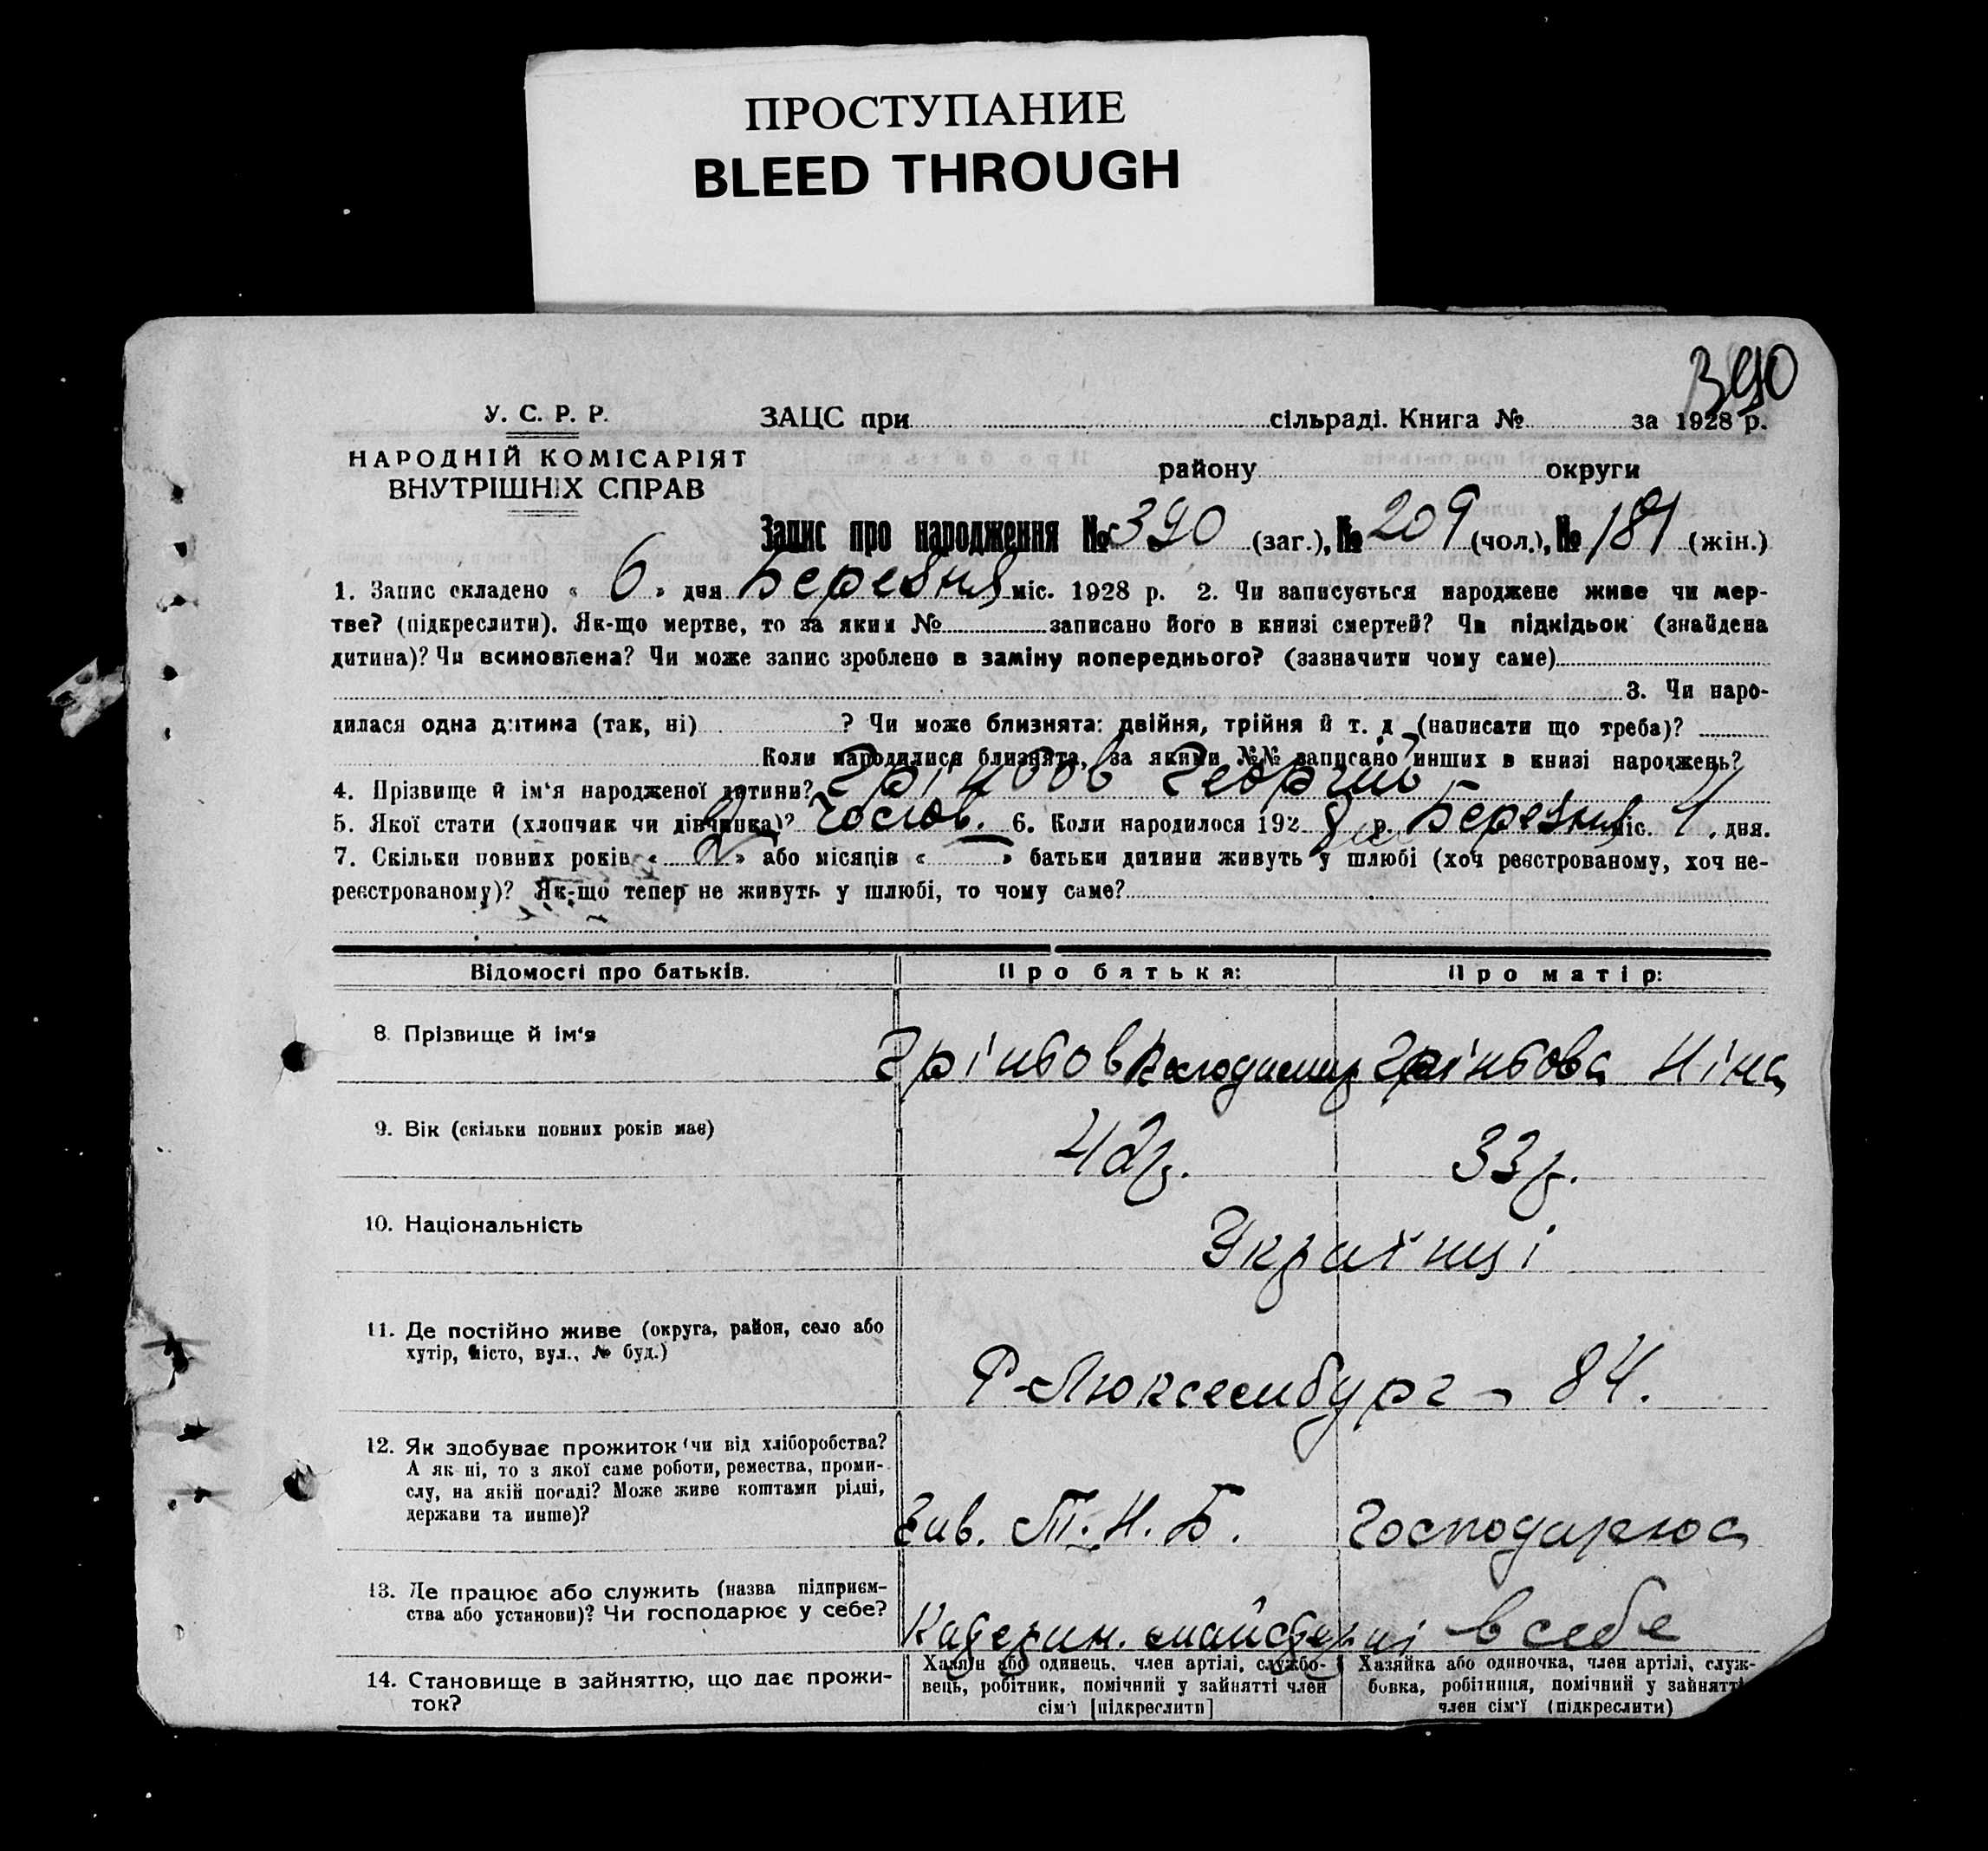 ПРОСТУПАНИЕ
BLEED THROUGH
390
У. С. Р. Р.
НАРОДНІЙ КОМІСАРІЯТ
ВНУТРІШНІХ СПРАВ
ЗАЦС при сільраді. Книга № за 1928 р.
району округи
Запис про народження № 390 (заг.), № 209 (чол.), № 181 (жін.)
1. Запис складено « 6 » дня Березня міс. 1928 р. 2. Чи записується народжене живе чи мер-
тве? (підкреслити). Як-що мертве, то за яким № записано його в книзі смертей? Чи підкідьок (знайдена
дитина)? Чи всиновлена? Чи може запис зроблено в заміну попереднього? (зазначити чому саме)
3. Чи наро-
дилася одна дитина (так, ні) ? Чи може близнята: двійня, трійня й т. д. (написати що треба)?
Коли народилися близнята, за якими №№ записано инших в книзі народжень?
4. Прізвище й ім'я народженої дитини? Гріньов Георгий
5. Якої стати (хлопчик чи дівчинка)? Чолов. 6. Коли народилося 1928 р. Березня міс. 4. дня.
7. Скільки повних років « 2 » або місяців « — » батьки дитини живуть у шлюбі (хоч реєстрованому, хоч не-
реєстрованому)? Як-що тепер не живуть у шлюбі, то чому саме?
Відомості про батьків. Про батька: Про матір:
8. Прізвище й ім'я Гріньов Володимир Гріньова Ніна
9. Вік (скільки повних років має) 42р. 33р.
10. Національність Українці
11. Де постійно живе (округа, район, село або
хутір, місто, вул., № буд.)
Р-Люксембург - 84.
12. Як здобуває прожиток (чи від хліборобства?
А як ні, то з якої саме роботи, ремества, проми-
слу, на якій посаді? Може живе коштами рідні,
держави та инше)?
Зав. Т. Н. Б. Господарює
13. Де працює або служить (назва підприєм-
ства або установи)? Чи господарює у себе?
майстерні в себе
14. Становище в зайняттю, що дає прожи-
ток?
Хазяїн або одинець, член артілі, службо-
вець, робітник, помічний у зайнятті член
сім'ї [підкреслити]
Хазяйка або одиночка, член артілі, служ-
бовка, робітниця, помічний у зайнятті
член сім'ї (підкреслити)